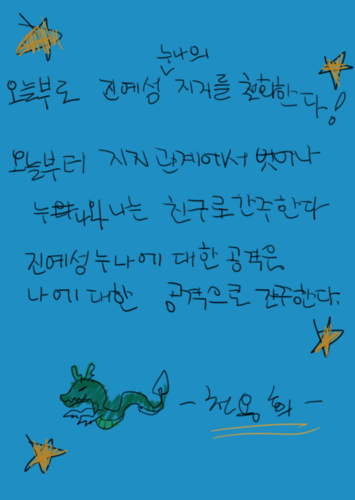 오늘부로 진예성 누나의 지지를 철회한다!
오늘부터 지지관계에서 벗어나
누나와 나는 친구로 간주한다
진예성 누나에 대한 공격은
나에 대한 공격으로 간주한다.
- 천용회 -